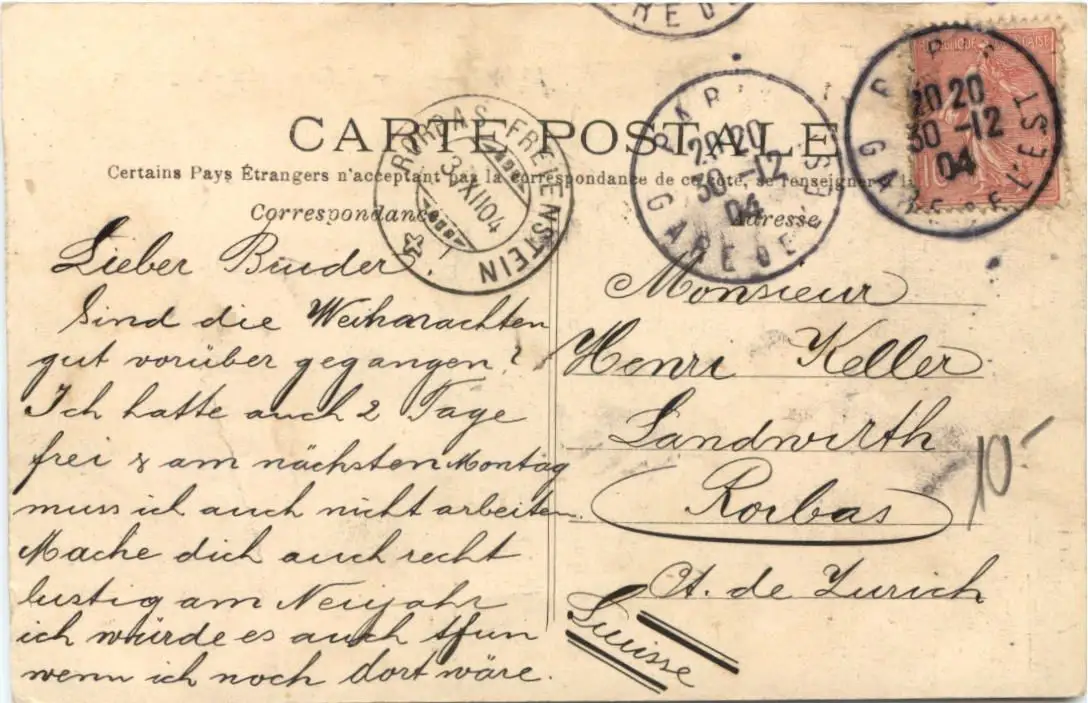 GARE DE
PARIS
GARE DE L'EST
20 20
30 -12
04
RÉPUBLIQUE FRANÇAISE
10
PARIS
GARE DE L'EST
20 20
30 -12
04
RORBAS FREIENSTEIN
31 XII 04
CARTE POSTALE
Certains Pays Étrangers n'acceptant pas la correspondance de ce côté, se renseigner à la
Correspondance
Adresse
Lieber Bruder
Sind die Weihnachten
gut vorüber gegangen?
Ich hatte auch 2 Tage
frei & am nächsten Montag
muss ich auch nicht arbeiten.
Mache dich auch recht
lustig am Neujahr
ich würde es auch thun
wenn ich noch dort wäre.
Monsieur
Henri Keller
Landwirth
Rorbas
Ct. de Zurich
Suisse
10-